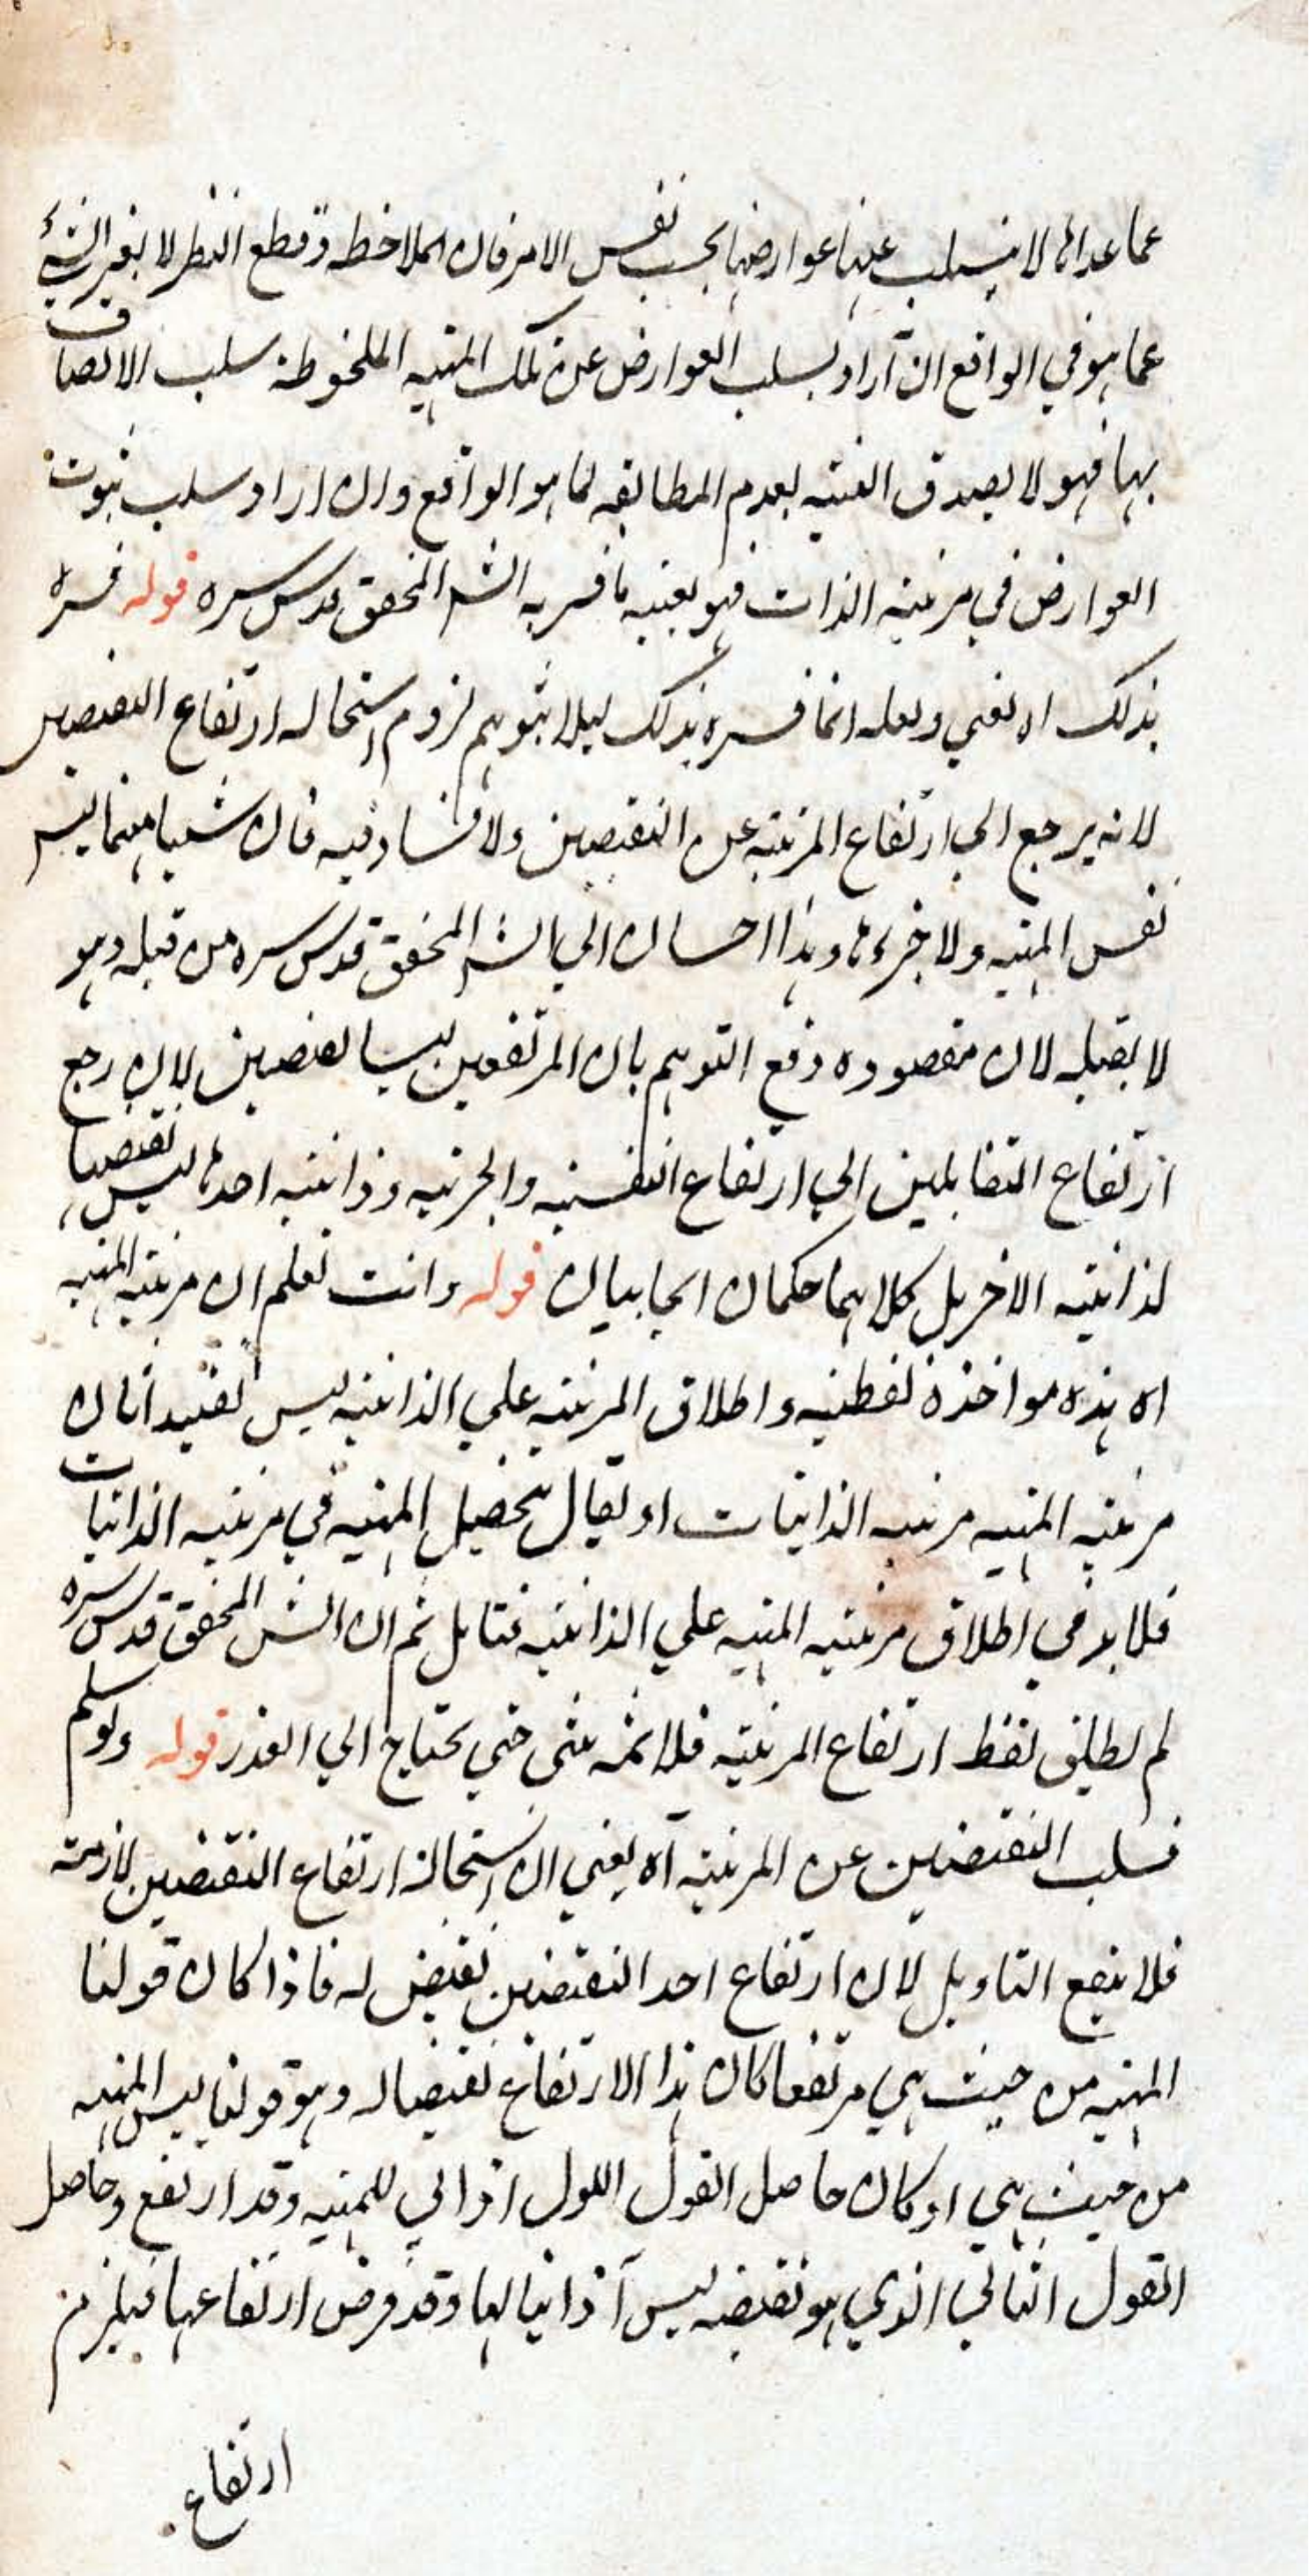 عما عداها لا ينسلب عنها عوارضها بحسب نفس الامر فان الملاحظة وقطع النظر لا يغير الشيء
عما هو في الواقع ان اراد بسلب العوارض عن تلك المهية الملحوظة سلب الاتصاف
بها فهو لا يصدق البتة لعدم المطابقة لما هو الواقع وان اراد سلب ثبوت
العوارض في مرتبة الذات فهو بعينه ما فسر به الشر المحقق قدس سره قوله فسره
بذلك اه يعني ولعله انما فسره بذلك ليلا يتوهم لزوم استحالة ارتفاع النقيضين
لانه يرجع الي ارتفاع المرتبة عن النقيضين ولا فساد فيه فان شيئا منهما ليس
نفس المهية ولا جزءها وهذا احسان الي الشر المحقق قدس سره من قبله وهو
لا يقبله لان مقصوده دفع التوهم بان المرتفعين ليسا نقيضين لان رجع
ارتفاع المتقابلين الي ارتفاع النفسية والجزئية وذاتية احدها ليس نقيضا
لذاتية الاخر بل كلاهما حكمان ايجابيان قوله وانت تعلم ان مرتبة المهية
اه هذه مواخذة لفظية واطلاق المرتبة علي الذاتية ليس بعيد انان
مرتبة المهية مرتبة الذاتيات او يقال بتحصيل المهية في مرتبة الذاتيات
فلا بد في اطلاق مرتبة المهية علي الذاتية فتامل ثم ان الش المحقق قدس سره
لم يطلق لفظ ارتفاع المرتبة فلا ثمه شي حتي يحتاج الي العذر قوله ولو سلم
فسلب النقيضين عن المرتبة آه يعني ان استحالة ارتفاع النقيضين لازمة
فلا ينفع التاويل لان ارتفاع احد النقيضين نقيض له فاذا كان قولنا
المهية من حيث هي مرتفعا كان هذا الارتفاع نقيضا له وهو قولنا ليس المهية
من حيث هي او كان حاصل القول الاول اذاتي للمهية وقد ارتفع وحاصل
القول الثاني الذي هو نقيضه ليس آ ذاتيا لها وقد فرض ارتفاعها فيلزم
ارتفاع